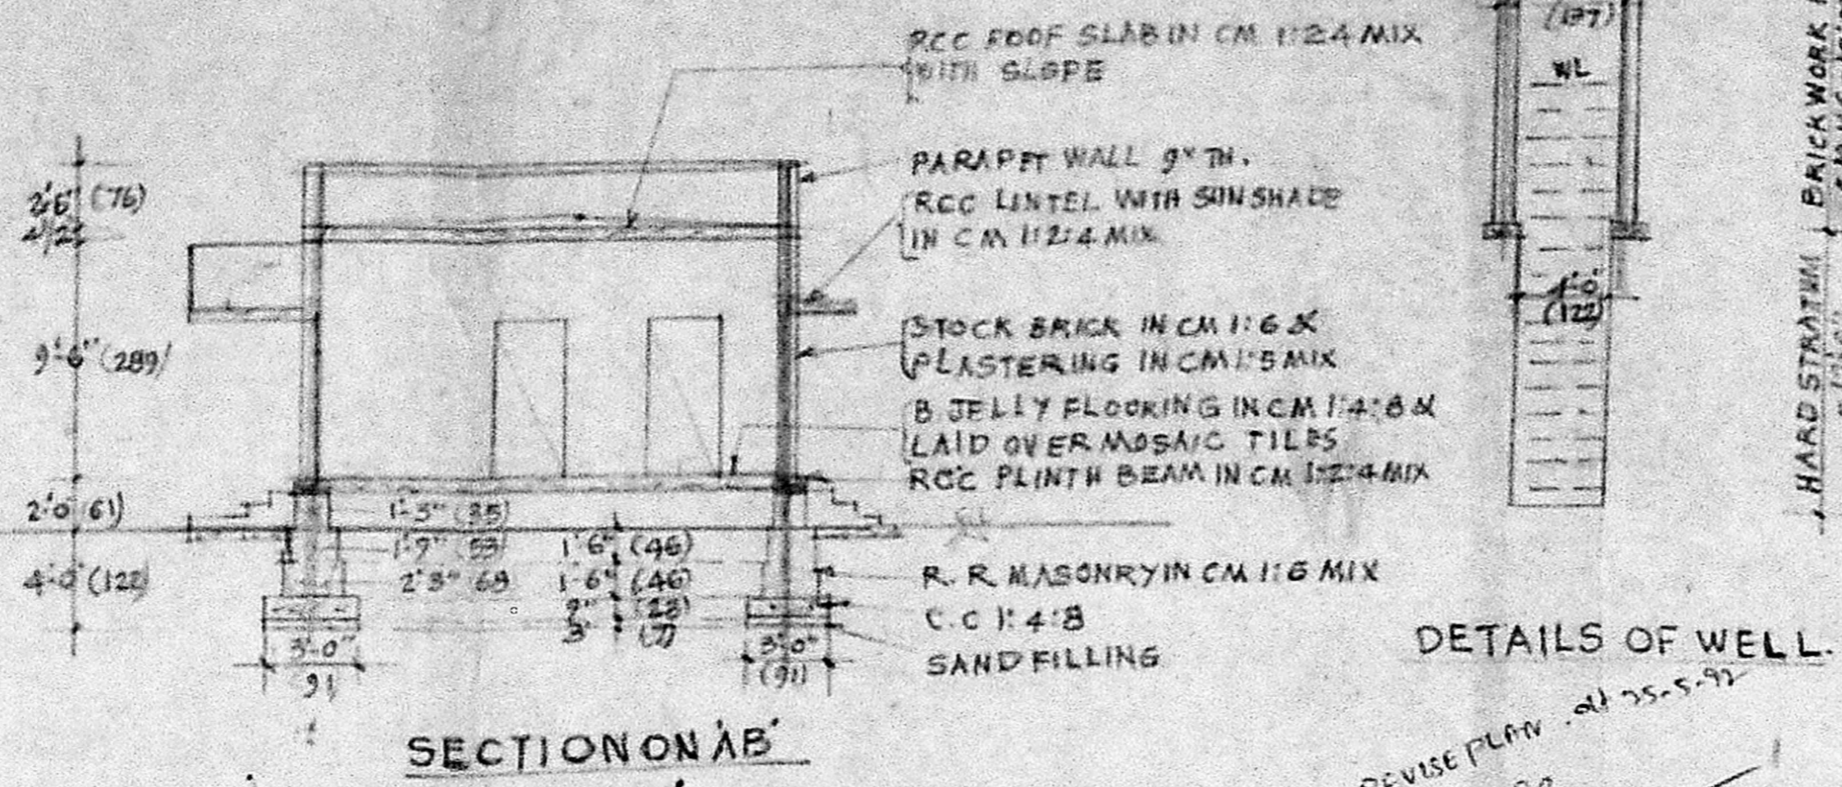 RCC ROOF SLAB IN CM 1:2:4 MIX
WITH SLOPE
PARAPET WALL 9" TH.
RCC LINTEL WITH SUNSHADE
IN CM 1:2:4 MIX
STOCK BRICK IN CM 1:6 &
PLASTERING IN CM 1:5 MIX
B JELLY FLOORING IN CM 1:4:8 &
LAID OVER MOSAIC TILES
RCC PLINTH BEAM IN CM 1:2:4 MIX
R. R MASONRY IN CM 1:6 MIX
C.C 1:4:8
SAND FILLING
2'-6" (76)
4 1/2"
9'-6" (289)
2'-0 (61)
4'-0" (122)
1'-3" (35)
1'-9" (53)
2'-3" 68
1'-6" (46)
1'-6" (46)
9" (23)
3" (7)
3'-0"
91
3'-0"
(91)
SECTION ON 'AB'
(137)
WL
4'-0"
(122)
HARD STRATUM
BRICKWORK
DETAILS OF WELL.
REVISE PLAN dt 25-5-92